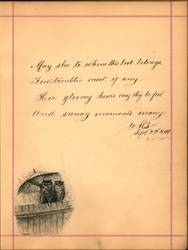 May she to whom this book belongs
Few troubles meet if any
Her gloomy hours may they be few
And sunny moments many
Sept